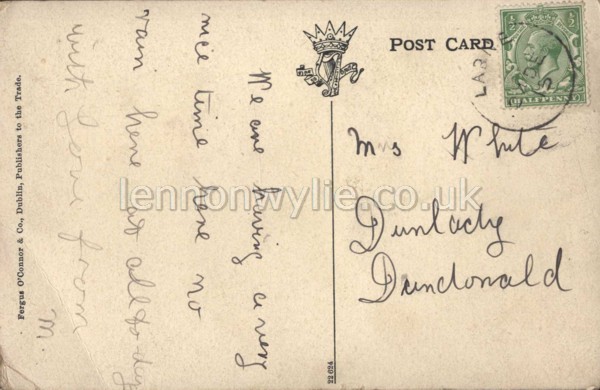 POST CARD
HALFPENNY
Ms White
Dunlady
Dundonald
We are having a very
nice time here no
rain here at all to day
with love from
M.
Fergus O'Connor & Co., Dublin, Publishers to the Trade.
22624
lennonwylie.co.uk